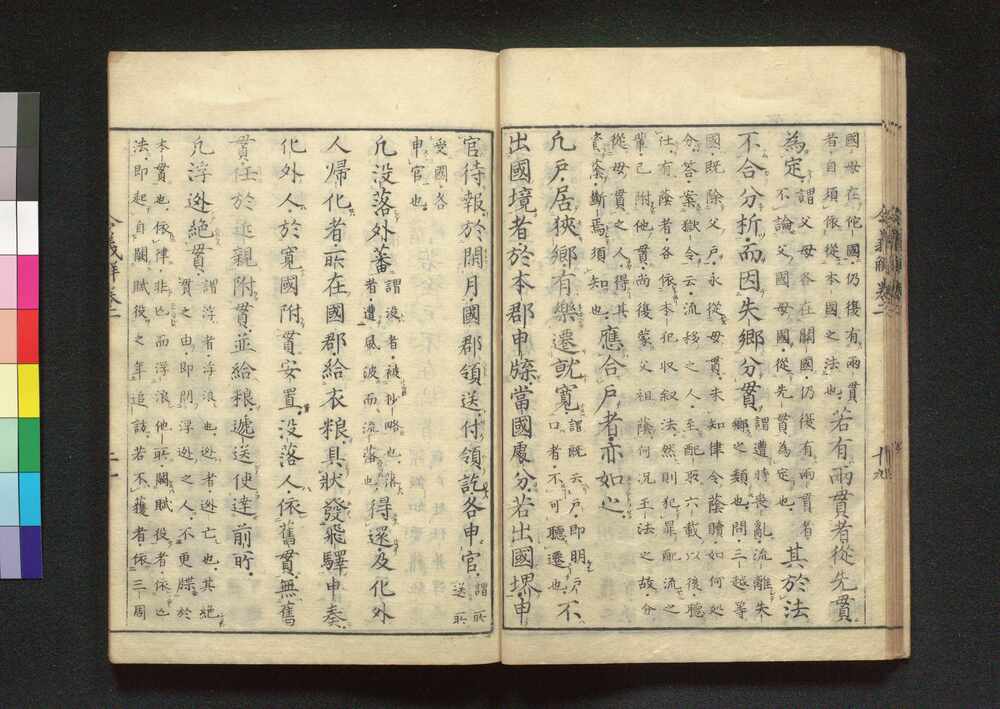 國・母在佗國・仍復有兩貫
者・自須依從本國之法也 若有兩貫者從先貫
為定 謂父母各在關國仍復有兩貫者
不論父國母國・從先貫為定也 其於法
不合分析・而因失鄉分貫 謂遭時喪亂・流離失
鄉之類也・問・三越等
國既除父戶・永從母貫・未知律令蔭贖如何処
分・答案獄令云・流移之人・至配所六載以後聽
仕・有蔭者・各依本犯収叙法・然則犯罪配流之
輩・已附他貫・尚復蒙父祖蔭・何況王法之故分
從母貫之人・得其
蔭・斷焉須知也 應合戶者・亦如之
凡戶・居狹鄉・有樂遷就寬 謂既云戶・即明戶
口者・不可聽遷也 不
出國境者・於本郡申牒當國處分・若出國堺申
官待報・於閑月・國郡領送・付領訖・各申官 謂所
送所
受國各
申官也
凡沒落外蕃 謂沒者・被抄略也・落
者・遭風波而流落也 得還・及化外
人歸化者・所在國郡・給衣粮・具狀發飛驛申奏・
化外人・於寬國附貫安置・沒落人依舊貫・無舊
貫・任於近親附貫・並給粮・遞送使達前所・
凡浮逃絕貫 謂浮者・浮浪也・逃者・逃亡也・其絕
貫之由・即浮逃之人・不更牒於
本貫也・依律・非亡而浮浪他所・闕賦役者・依亡
法・即起自闕賦役之年追計・若不獲者・依三周
令義解卷二 十九
令義解卷二